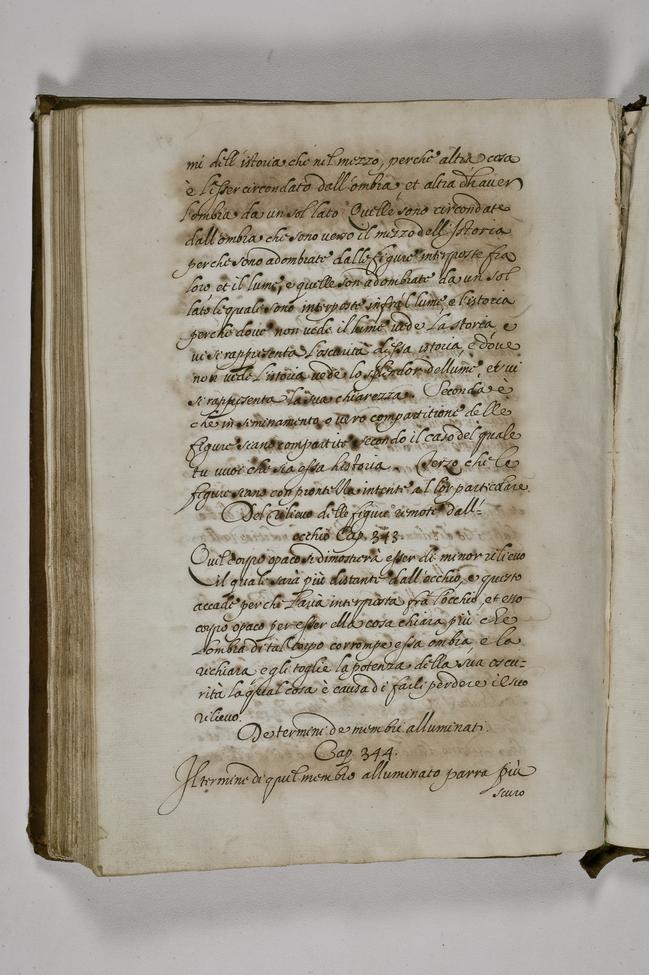 mi dell'istoria che nel mezzo, perche altra cosa
è l'esser circondato dall'ombra, et altra d'haver
l'ombra da un sol lato Quelle sono circondate
dall'ombra che sono verso il mezzo dell'Istoria
perche sono adombrate dalle figure interposte fra
loro et il lume, e quelle son adombrate da un sol
lato le quale sono interposte infra'l lume e l'istoria
perche dove non vede il lume vede la storia, e
vi si rappresenta l'oscurità d'essa istoria, e dove
non vede l'istoria vede lo splendor del lume, et ivi
si rappresenta la sua chiarezza. Seconda è
che in seminamento o vero compartitione delle
figure siano compartite secondo il caso del quale
tu vuoi che sia essa historia. Terzo che le
figure siano con prontezza intente al lor particolare
Del rilievo delle figure remote dall'-
occhio Cap. 343.
Quel corpo opaco si dimostrerà esser di minor rilievo
il quale sarà più distante dall'occhio, e questo
accade perche l'aria interposta fra l'occhio, et esso
corpo opaco per esser ella cosa chiara più che
l'ombra di tal corpo corrompe essa ombra, e la
richiara e gli toglie la potenza della sua oscu-
rità la qual cosa è causa di farli perdere il suo
rilievo.
De termini de membri alluminati.
Cap. 344.
Il termine di quel membro alluminato parra più
scuro